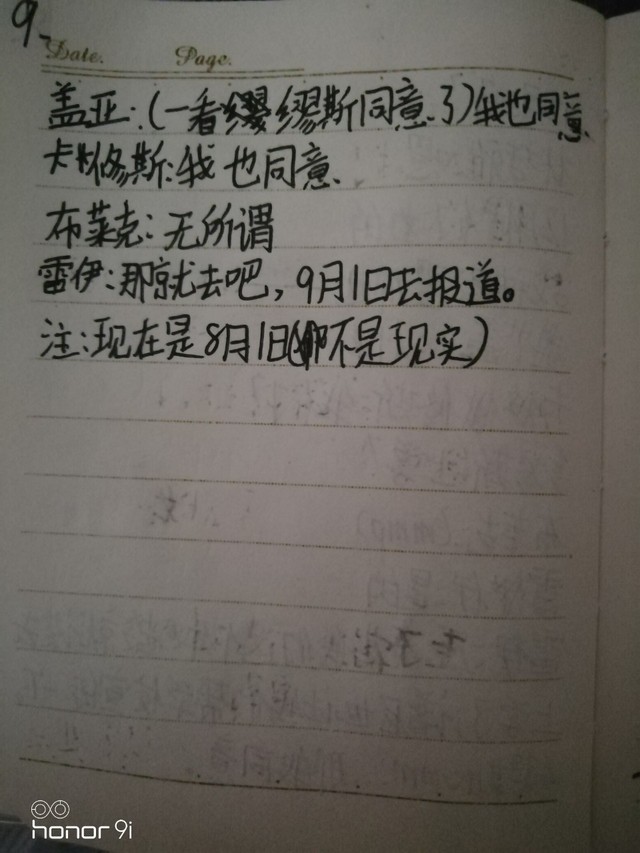 9.
Date. Page.
盖亚:(一看缪斯同意了)我也同意
卡修斯:我也同意
布莱克:无所谓
雷伊:那就去吧,9月1日去报道。
注:现在是8月1日(不是现实)
honor 9i